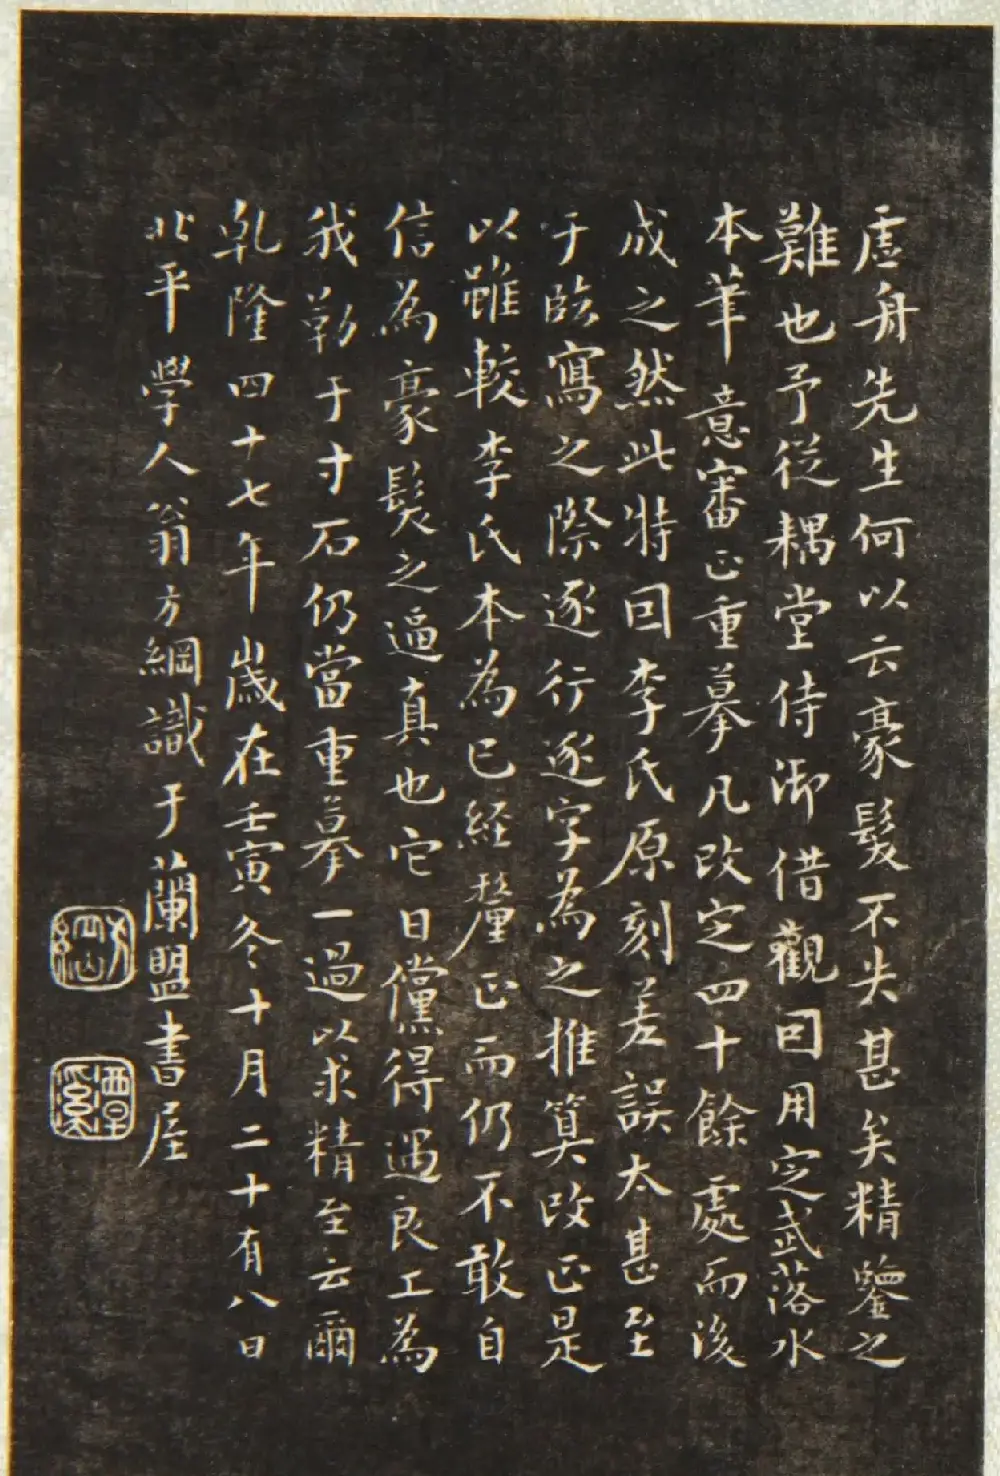 虛舟先生何以云豪髮不失甚矣精鑒之
難也予從耦堂侍御借觀因用定武落水
本筆意審正重摹凡改定四十餘處而後
成之然此特回李氏原刻差誤太甚至
于臨寫之際逐行逐字為之推算改正是
以雖較李氏本為已經釐正而仍不敢自
信為豪髮之逼真也它日儻得遇良工為
我勒于寸石仍當重摹一過以求精至云爾
乾隆四十七年歲在壬寅冬十月二十有八日
北平學人翁方綱識于蘭盟書屋
方綱